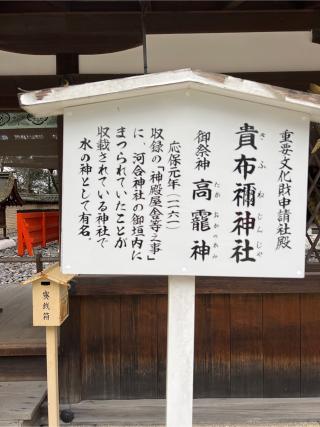 重要文化財申請社殿
貴布禰神社
きふねじんじゃ
御祭神 高龗神
たかおかのかみ
応保元年（一一六一）
収録の「神殿屋舎等之事」
に、河合神社の御垣内に
まつられていたことが
収載されている神社で
水の神として有名。
賽銭箱